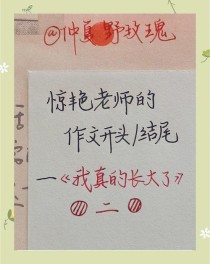 @仲夏野玫瑰
惊艳老师的
作文开头/结尾
一《我真的长大了》
二